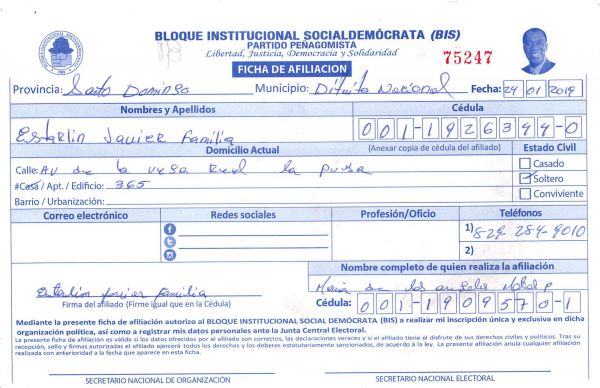 BLOQUE INSTITUCIONAL SOCIALDEMÓCRATA (BIS)
PARTIDO PEÑAGOMISTA
Libertad, Justicia, Democracia y Solidaridad
75247
FICHA DE AFILIACION
Provincia: Santo Domingo Municipio: Ditrito Nacional Fecha: 24 01 2019
Nombres y Apellidos Cédula
Estarlin Javier Familia 001-1926344-0
Domicilio Actual (Anexar copia de cédula del afiliado) Estado Civil
Calle: Av de la Real la Casado
#Casa / Apt. / Edificio: 365 Soltero
Barrio / Urbanización: Conviviente
Correo electrónico Redes sociales Profesión/Oficio Teléfonos
1) 829-284-9010
2)
Nombre completo de quien realiza la afiliación
Estarlin Javier Familia Maria de los angeles
Firma del afiliado (Firme igual que en la Cédula) Cédula: 001-1909570-1
Mediante la presente ficha de afiliación autorizo al BLOQUE INSTITUCIONAL SOCIAL DEMÓCRATA (BIS) a realizar mi inscripción única y exclusiva en dicha
organización política, así como a registrar mis datos personales ante la Junta Central Electoral.
La presente ficha de afiliación es válida si los datos ofrecidos por el afiliado son correctos, las declaraciones veraces y si el afiliado tiene el disfrute de sus derechos civiles y políticos. Tras su
recepción, sello y firmas autorizadas el afiliado ejercerá todos los derechos y los deberes estatutariamente sancionados, de acuerdo a la ley. La presente afiliación anula cualquier afiliación
realizada con anterioridad a la fecha que aparece en esta ficha.
SECRETARIO NACIONAL DE ORGANIZACIÓN SECRETARIO NACIONAL ELECTORAL